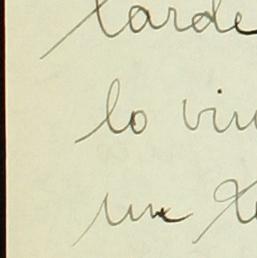 tarde
lo
un